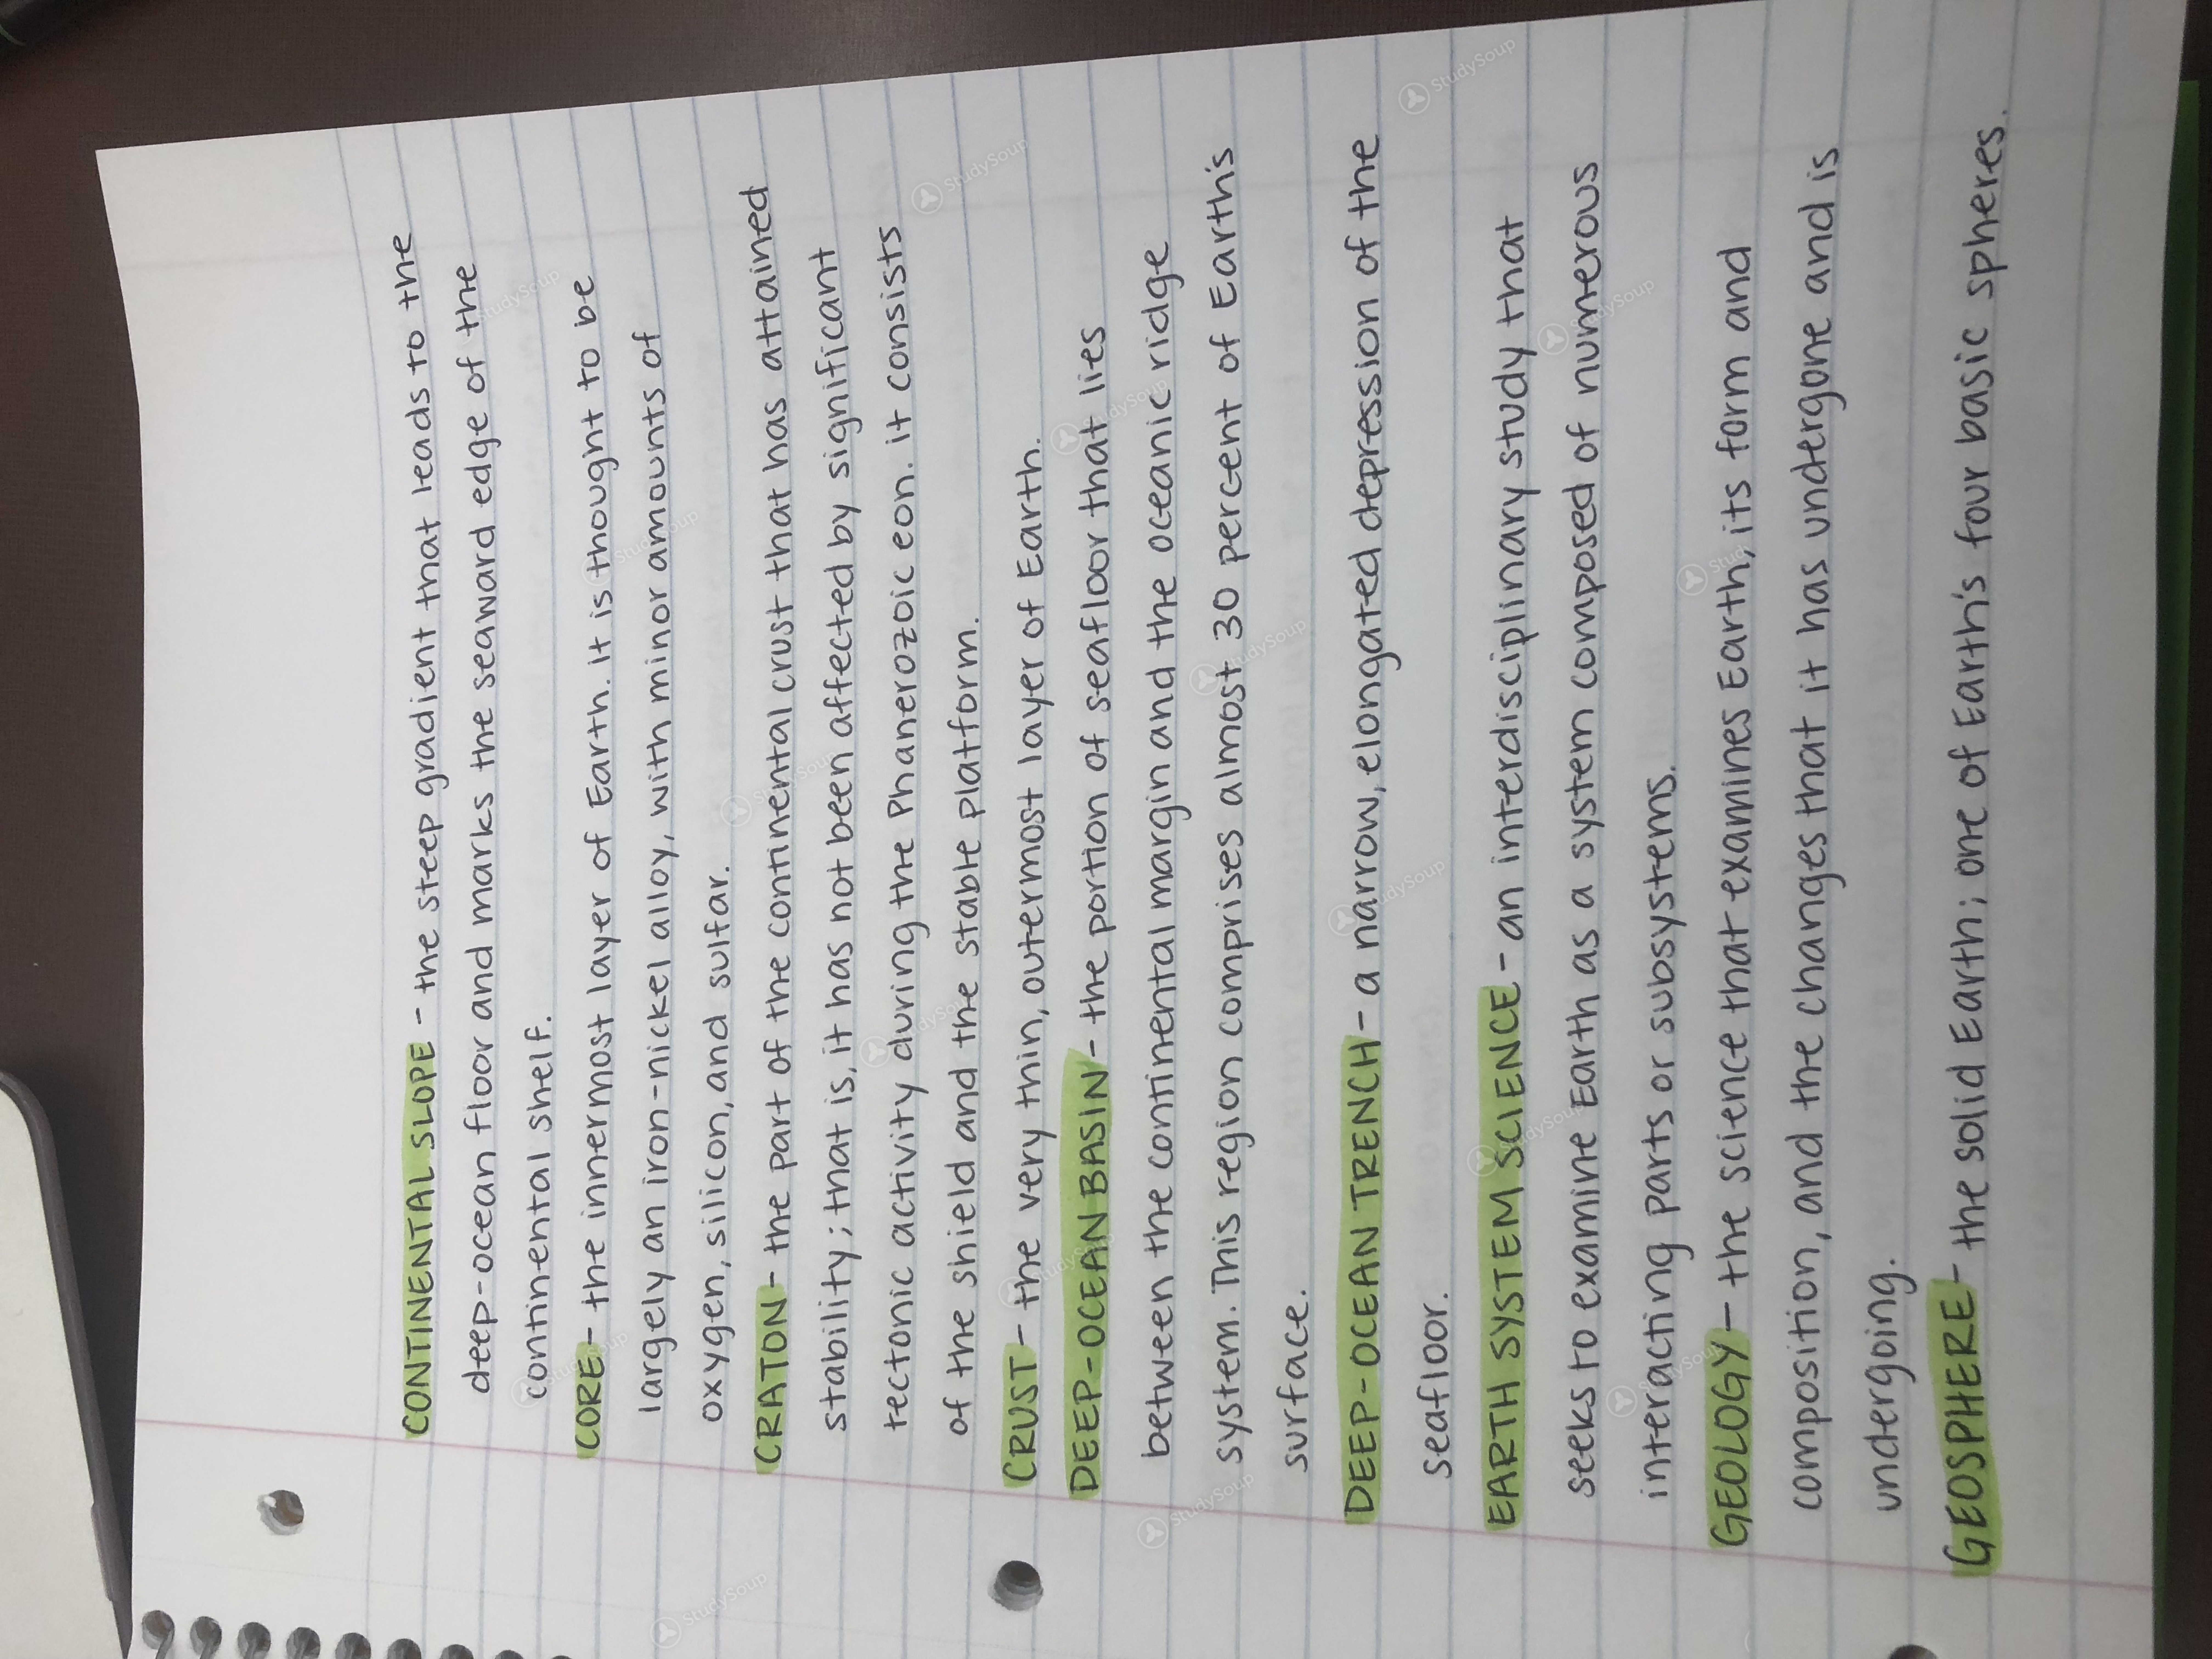 CONTINENTAL SLOPE - the steep gradient that leads to the
deep-ocean floor and marks the seaward edge of the
continental shelf.
CORE - the innermost layer of Earth. it is thought to be
largely an iron-nickel alloy, with minor amounts of
oxygen, silicon, and sulfar.
CRATON - the part of the continental crust that has attained
stability; that is, it has not been affected by significant
tectonic activity during the Phanerozoic eon. it consists
of the shield and the stable platform.
CRUST - the very thin, outermost layer of Earth.
DEEP-OCEAN BASIN - the portion of seafloor that lies
between the continental margin and the oceanic ridge
system. This region comprises almost 30 percent of Earth's
surface.
DEEP-OCEAN TRENCH - a narrow, elongated depression of the
seafloor.
EARTH SYSTEM SCIENCE - an interdisciplinary study that
seeks to examine Earth as a system composed of numerous
interacting parts or subsystems.
GEOLOGY - the science that examines Earth, its form and
composition, and the changes that it has undergone and is
undergoing.
GEOSPHERE - the solid Earth; one of Earth's four basic spheres.
StudySoup